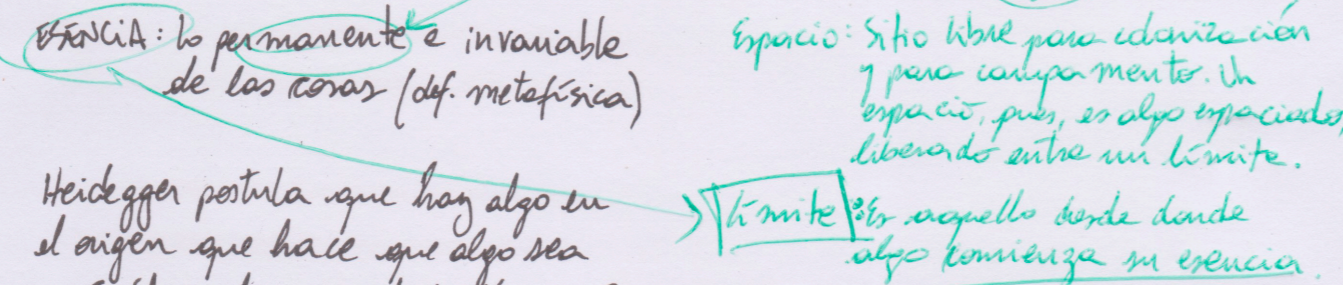 ESENCIA: lo permanente e invariable
de las cosas (def. metafísica)
Heidegger postula que hay algo en
el origen que hace que algo sea
Espacio: Sitio libre para colonización
y para campamento. Un
espacio, pues, es algo espaciado,
liberado entre un límite.
Límite: Es aquello desde donde
algo comienza su esencia.